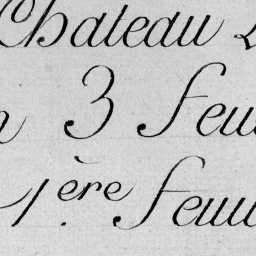 Chateau
3 feu
1ère feu